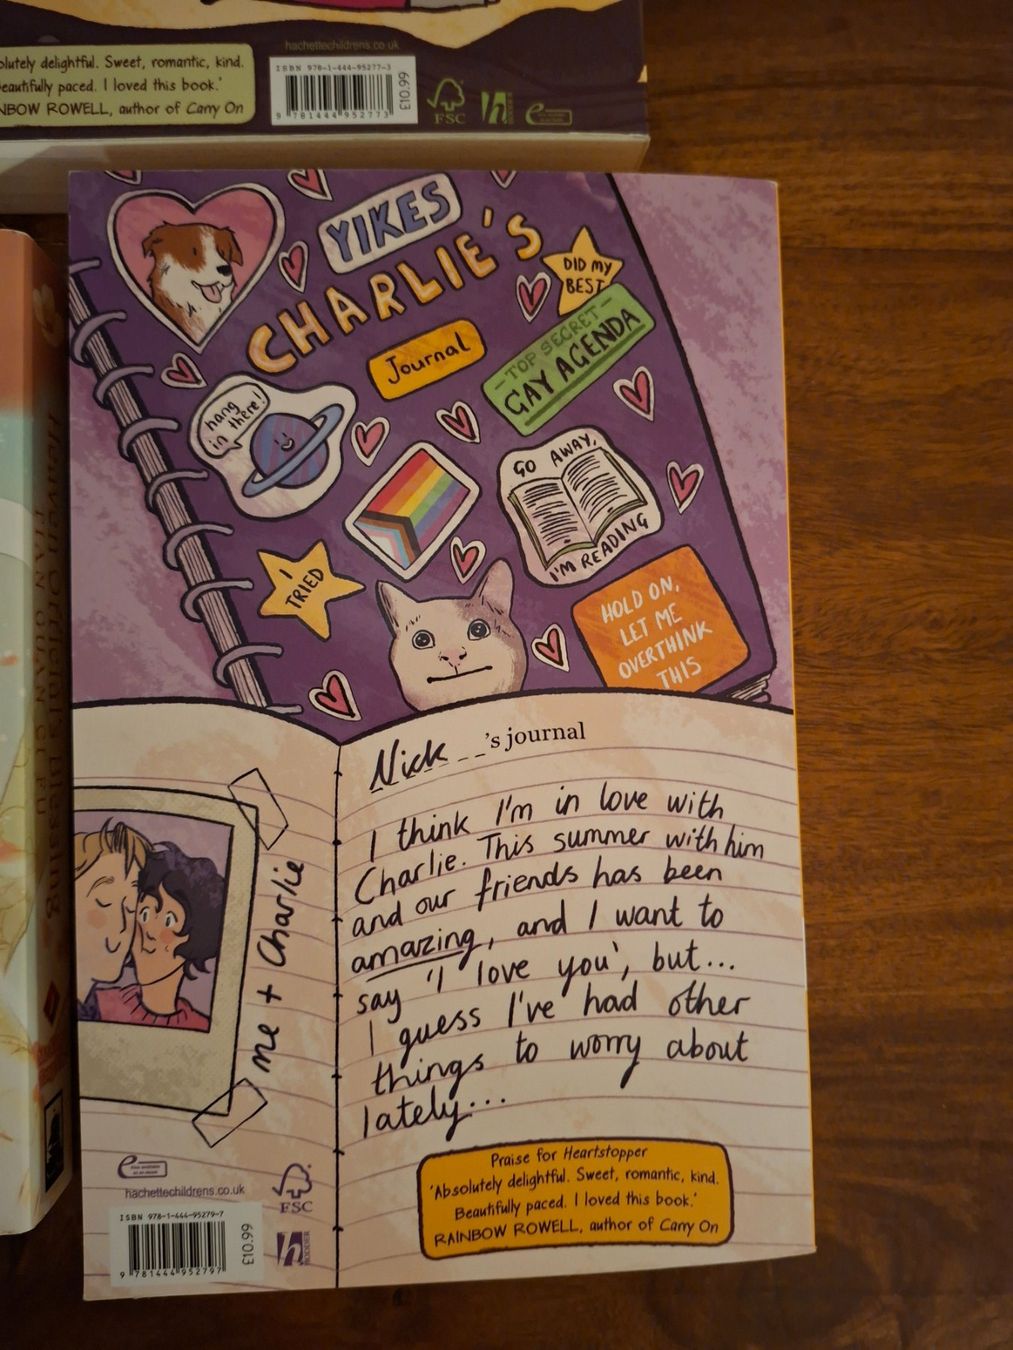 hachettechildrens.co.uk
solutely delightful. Sweet, romantic, kind.
eautifully paced. I loved this book.'
NBOW ROWELL, author of Carry On
ISBN 978-1-444-95277-3
9 781444 952773
£10.99
FSC
h
HODDER
e
YIKES
CHARLIE'S
DID MY
BEST
Journal
-TOP SECRET-
GAY AGENDA
hang
in there!
GO AWAY,
I'M READING
I
TRIED
HOLD ON,
LET ME
OVERTHINK
THIS
Nick __'s journal
I think I'm in love with
Charlie. This summer with him
and our friends has been
amazing, and I want to
say 'I love you', but...
I guess I've had other
things to worry about
lately...
me + Charlie
Praise for Heartstopper
'Absolutely delightful. Sweet, romantic, kind.
Beautifully paced. I loved this book.'
RAINBOW ROWELL, author of Carry On
e
hachettechildrens.co.uk
FSC
ISBN 978-1-444-95279-7
9 781444 952797
£10.99
h
HODDER
Heaven Official's Blessing
TIAN GUAN CI FU